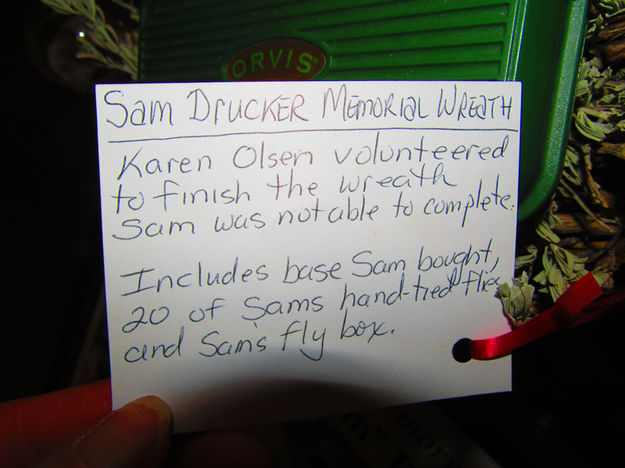 ORVIS
Sam Drucker Memorial Wreath
Karen Olsen volunteered
to finish the wreath
Sam was not able to complete.
Includes base Sam bought,
20 of Sams hand-tied flies
and Sam's fly box.